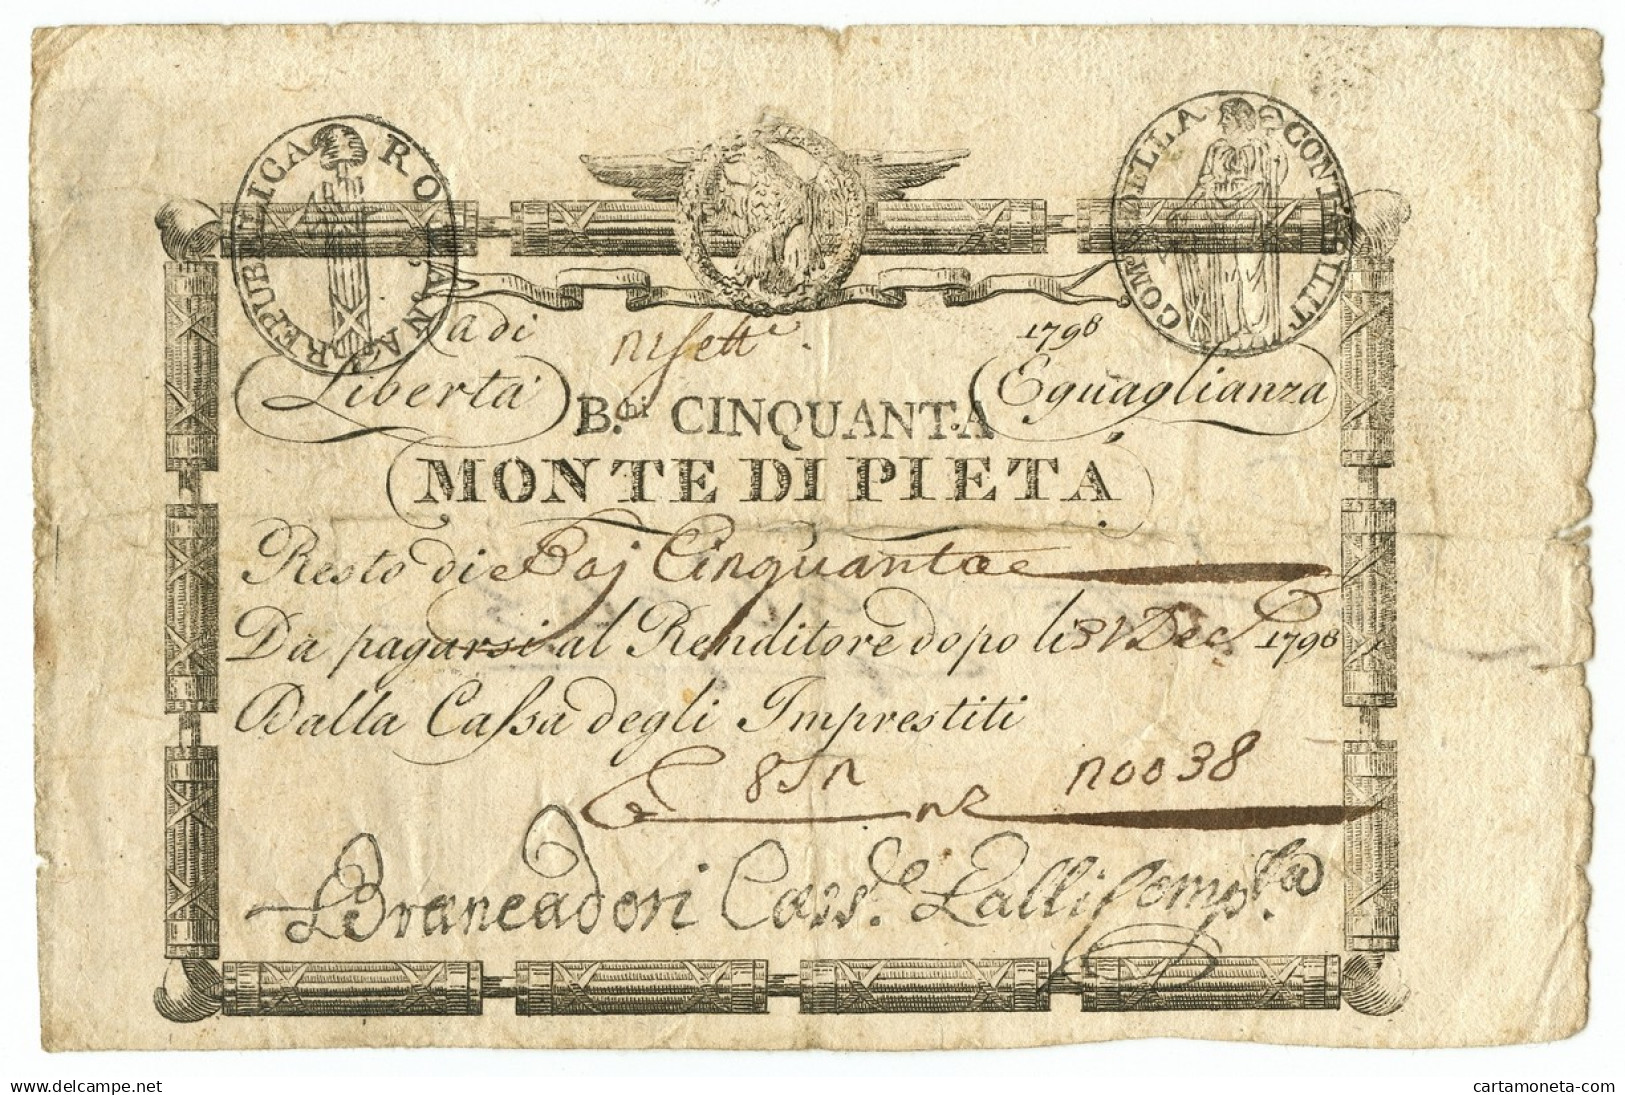 REPUBLICA ROMANA
COM. DELLA CONTABILIT
a di 1798
Libertà Eguaglianza
B.chi CINQUANTA
MONTE DI PIETÀ
Resto di Baj Cinquanta
Da pagarsi al Renditore dopo li 31 Dec. 1798
Dalla Cassa degli Imprestiti
n 0038
Brancadori Cass.e Lalli Comp.ta
delcampe.net
cartamoneta-com